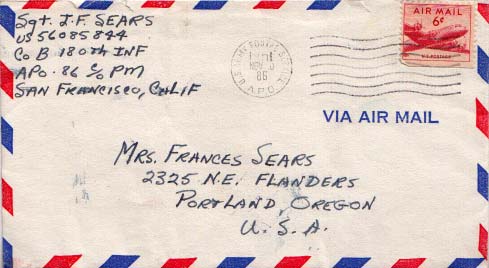 Sgt. I.F. SEARS
US 56085844
CO B 180th INF
APO. 86 C/O PM
SAN FRANCISCO, CALIF
AIR MAIL
6¢
U.S. POSTAGE
NOV
86
A.P.O.
VIA AIR MAIL
MRS. FRANCES SEARS
2325 N.E. FLANDERS
PORTLAND, OREGON
U.S.A.